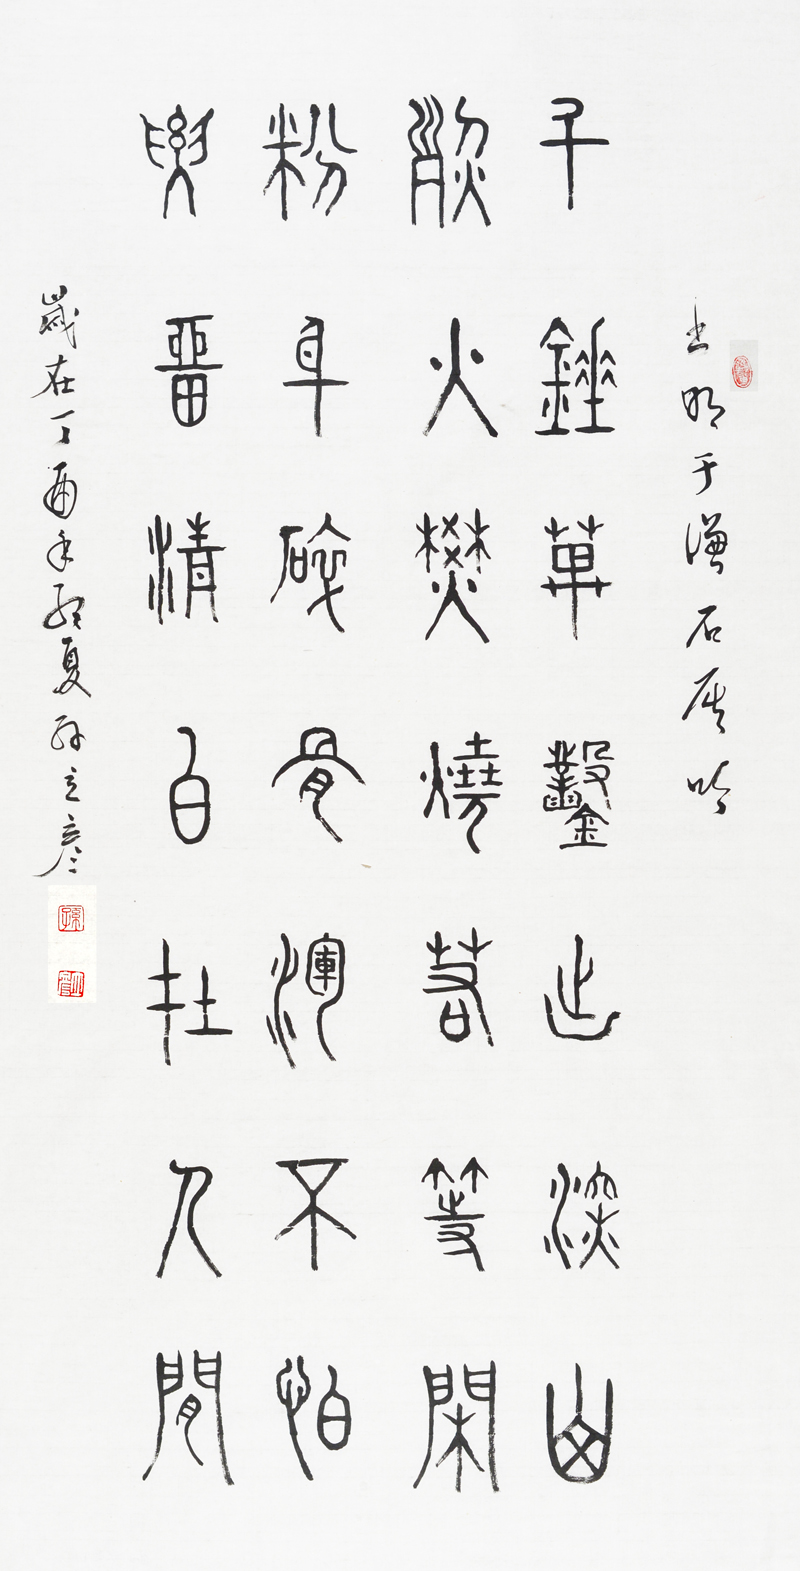 书明于谦石灰吟
千錘萬鑿出深山
烈火焚燒若等閑
粉身碎骨渾不怕
要留清白在人間
歲在丁酉年夏孙立彦